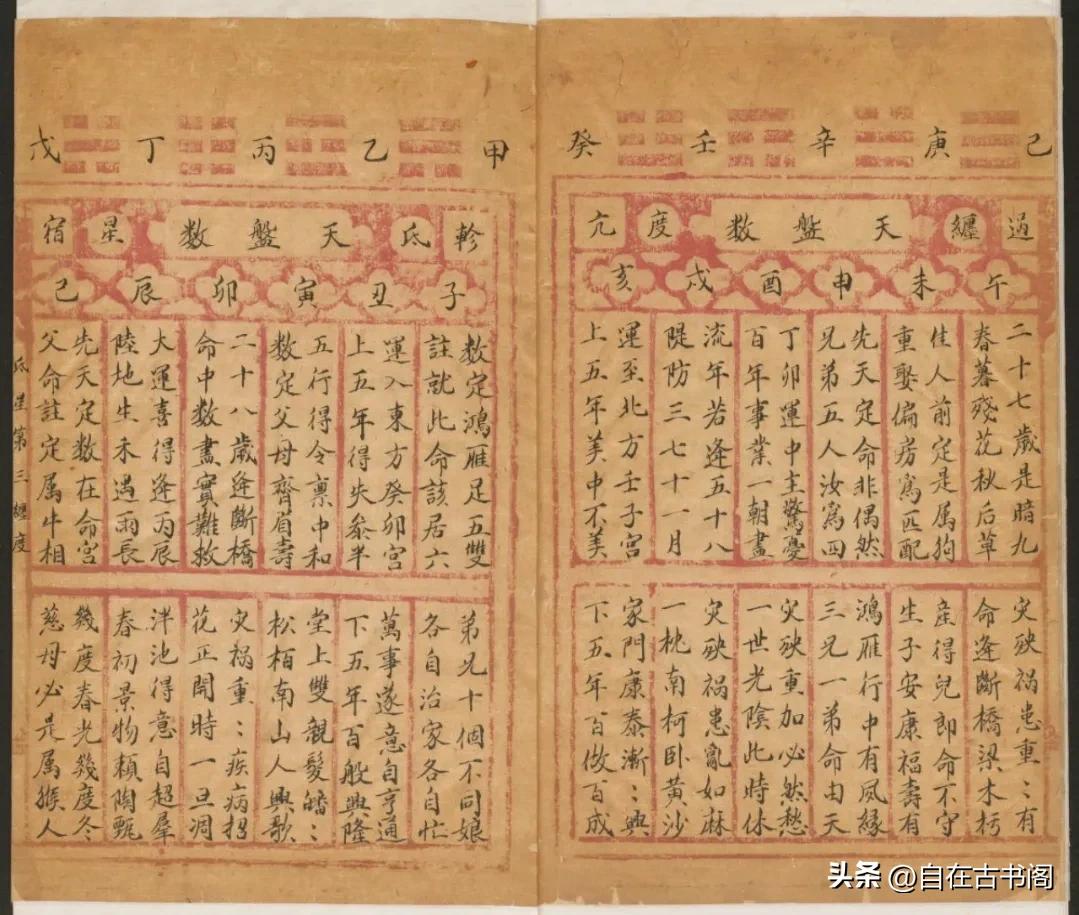 己 庚 辛 壬 癸
過 纏 天盤数 度 亢
午 未 申 酉 戌 亥
二十七歲是暗九
春暮殘花秋后草
佳人前定是属狗
重娶偏房為匹配
先天定命非偶然
兄弟五人汝為四
丁卯運中主驚憂
百年事業一朝盡
流年若逢五十八
隄防三七十一月
運至北方壬子宮
上五年美中不美
灾殃祸患重：有
命逢斷橋梁木朽
産得兒郎命不守
生子安康福壽有
鴻雁行中有夙緣
三兄一弟命由天
灾殃重加必然愁
一世光陰此時休
灾殃祸患亂如麻
一枕南柯卧黄沙
家門康泰漸：興
下五年百做百成
甲 乙 丙 丁 戊
軫 氐 天盤数 星 宿
子 丑 寅 卯 辰 巳
数定鴻雁足五雙
註就此命該居六
運入東方癸卯宮
上五年得失叅半
五行得令禀中和
数定父母齊眉壽
二十八歲逢斷橋
命中数盡實難救
大運喜得逢丙辰
陸地生禾遇雨長
先天定数在命宮
父命註定属牛相
弟兄十個不同娘
各自治家各自忙
萬事遂意自亨通
下五年百般興隆
堂上雙親髮皤：
松栢南山人興歌
灾祸重：疾病招
花正開時一旦凋
泮池得意自超羣
春初景物頼陶甄
幾度春光幾度冬
慈母必是属猴人
氐星第三纏度
头条 @自在古书阁